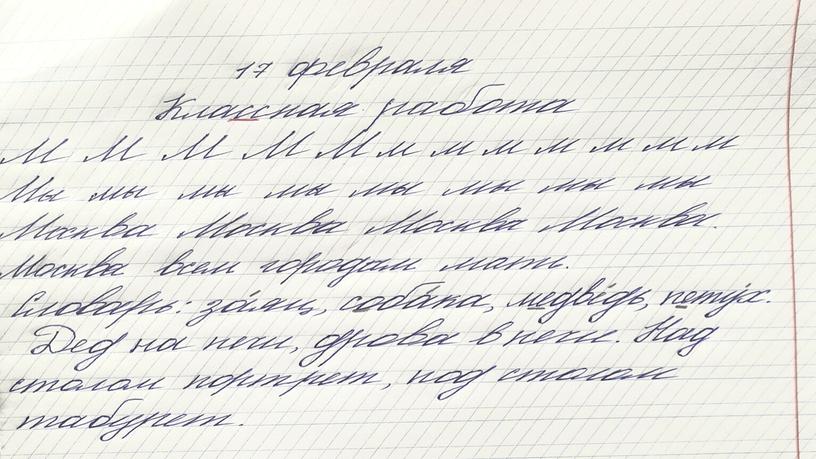 17 февраля
Классная работа
М М М М М м м м м м м м
Мы мы мы мы мы мы мы мы
Москва Москва Москва Москва.
Москва всем городам мать.
Словарь: за́яц, соба́ка, медве́дь, пету́х.
Дед на печи, дрова в печи. Над
столом портрет, под столом
табурет.